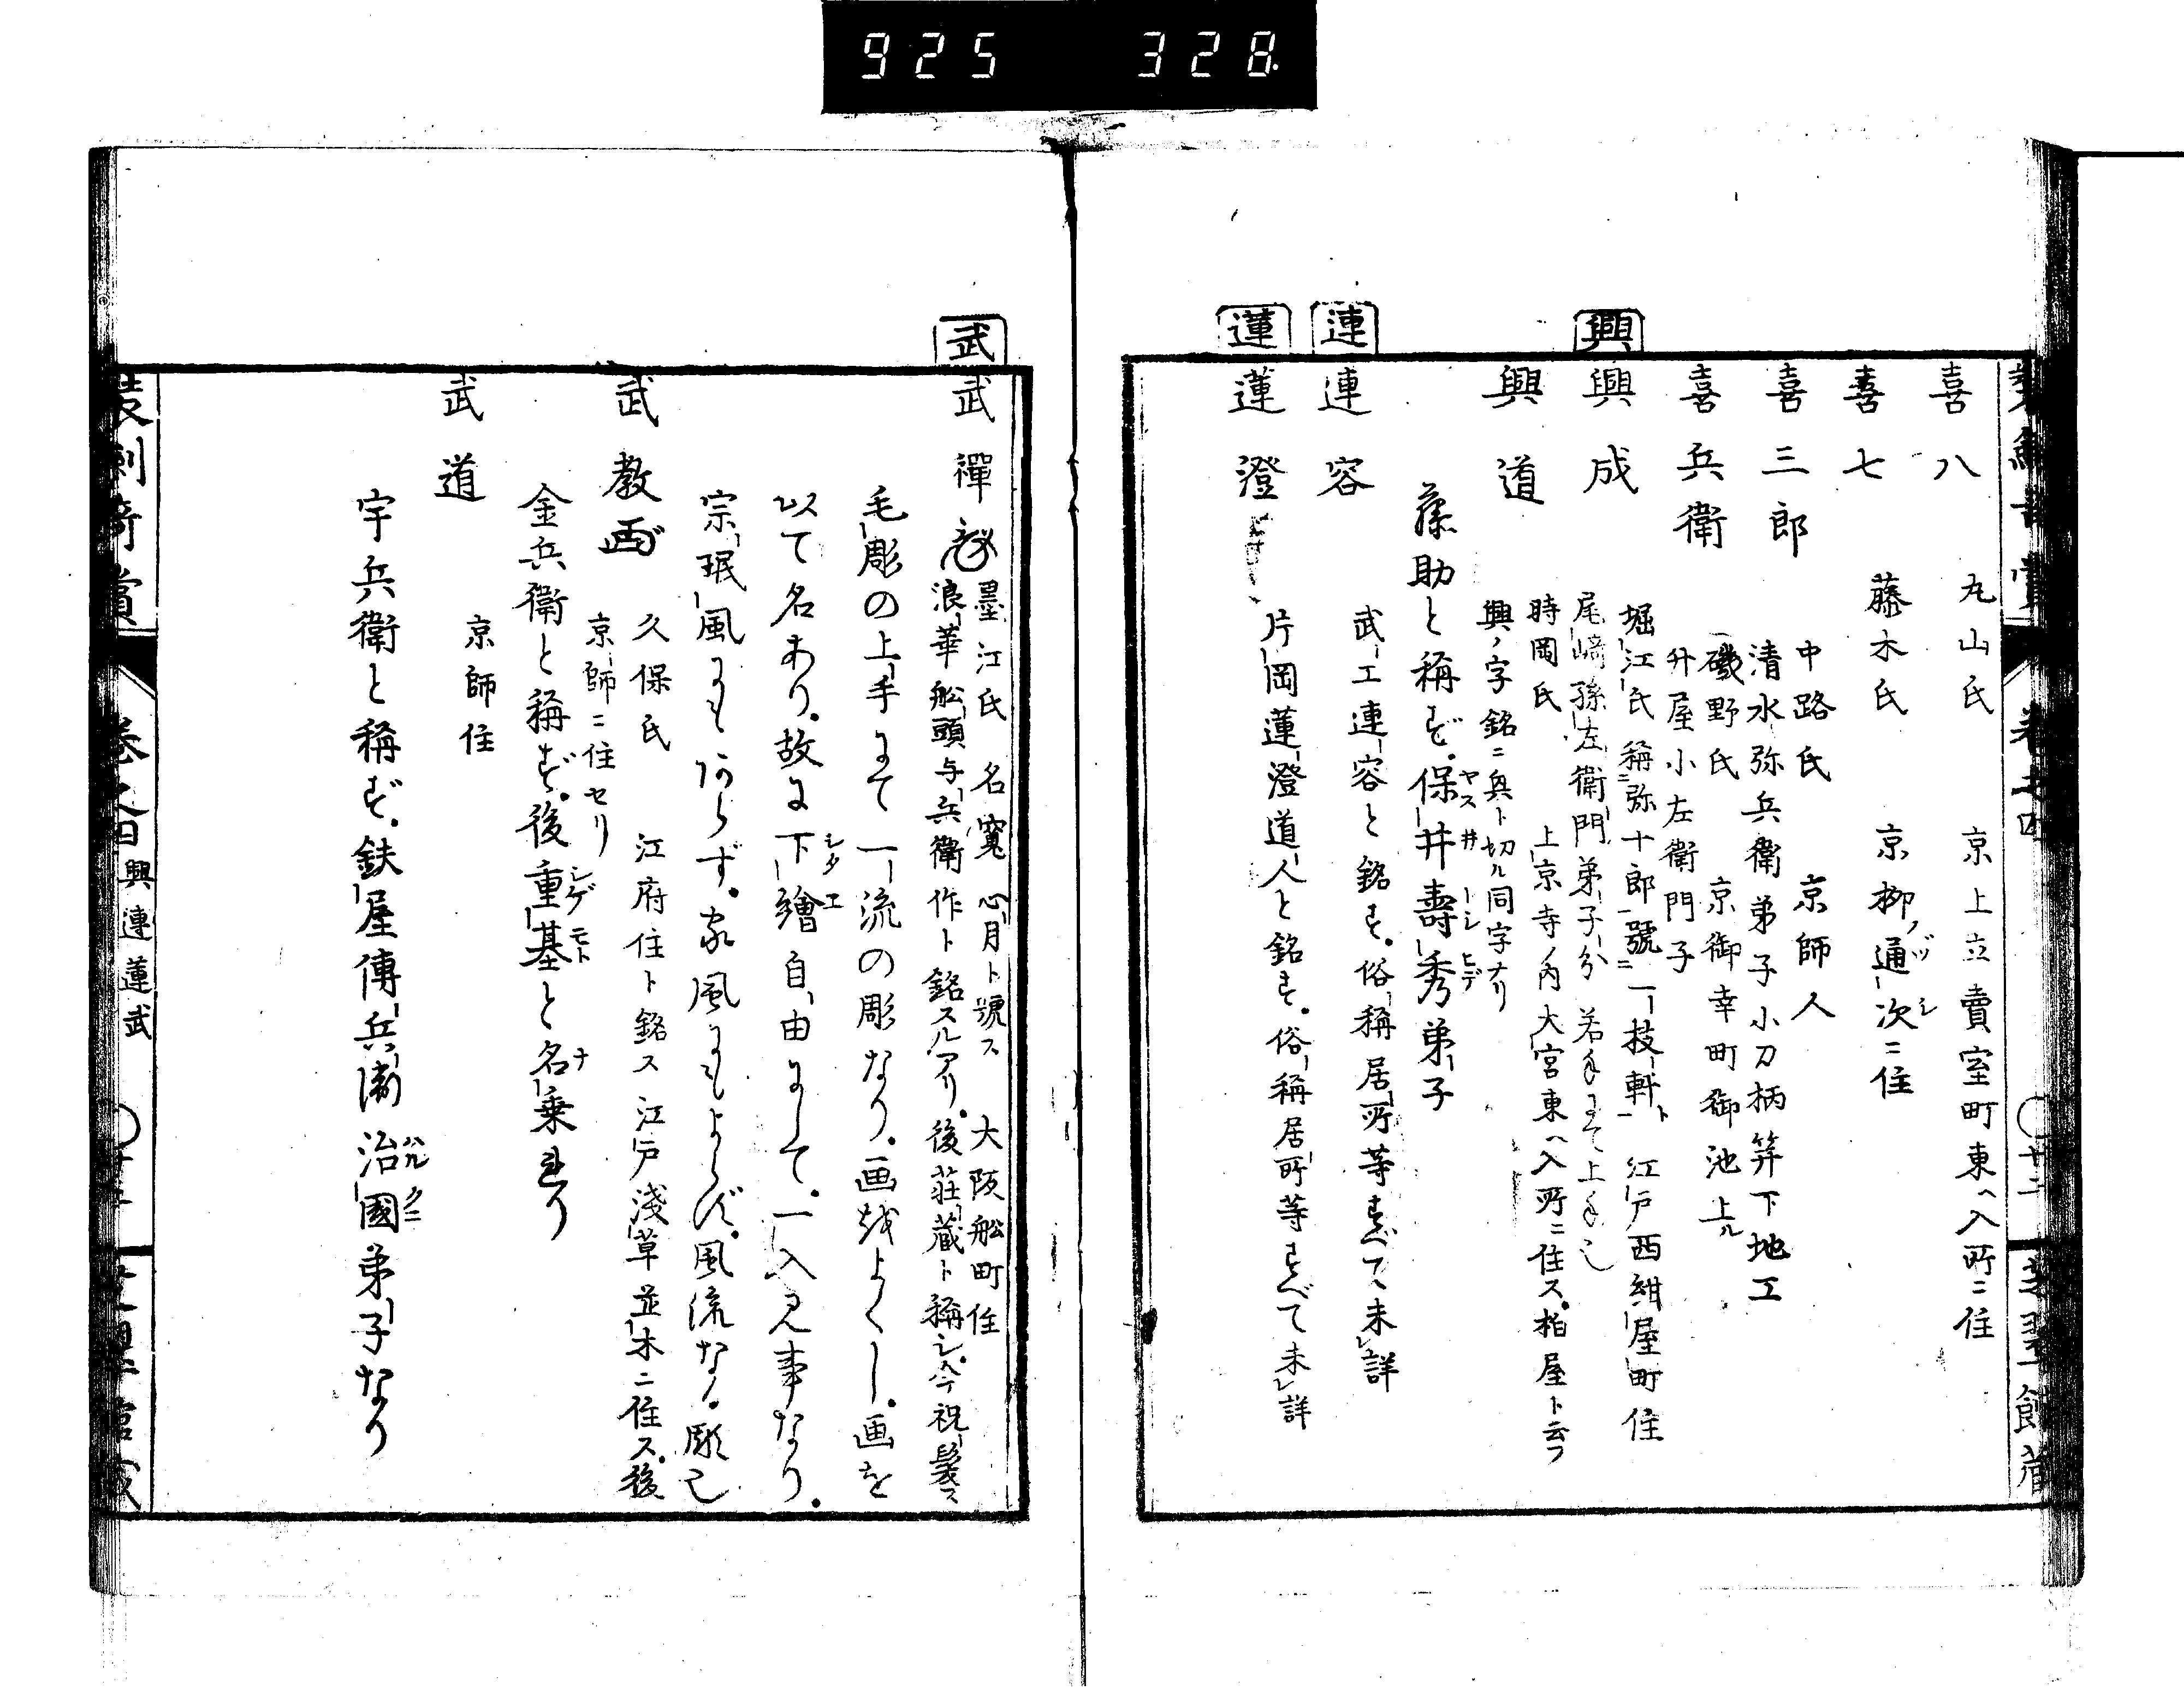 925 328
喜八 丸山氏 京上立賣室町東ヘ入所ニ住
喜七 藤木氏 京柳ノ通次ニ住
喜三郎 中路氏 京師人
清水弥兵衛弟子小刀柄笄下地工
喜兵衛 磯野氏 京御幸町御池上ル
升屋小左衛門子
興
興成 堀江氏 稱ニ弥十郎一號ニ一技軒ト 江戸西紺屋町住
尾崎孫左衛門弟子分 若手にて上手也
興道 時岡氏 上京寺ノ内大宮東ヘ入所ニ住ス。柏屋ト云フ
興ノ字銘ニ兵ト切ル同字ナリ
藤助と稱ず。保井壽秀弟子
連
連容 武工連容と銘す。俗稱居所等すべて未レ詳
蓮
蓮澄 片岡蓮澄道人と銘す。俗稱居所等すべて未レ詳
武
武禪 墨江氏 名寛 心月ト號ス 大阪舩町住
浪華舩頭与兵衛作ト銘スルアリ。後荘蔵ト稱シ。今祝髪ス
毛彫の上手にて一流の彫なり。画を よくし。画を
以て名あり。故に下繪自由にして。一入見事なり。
宗珉風にもあらず。家風にもよらず。風流なる彫也
武教 久保氏 江府住ト銘ス 江戸淺草並木ニ住ス。後
京師ニ住セリ
金兵衛と稱ず。後重基と名乗れり
武道 京師住
宇兵衛と稱ず。鉄屋傳兵衛治國弟子なり
興連蓮武